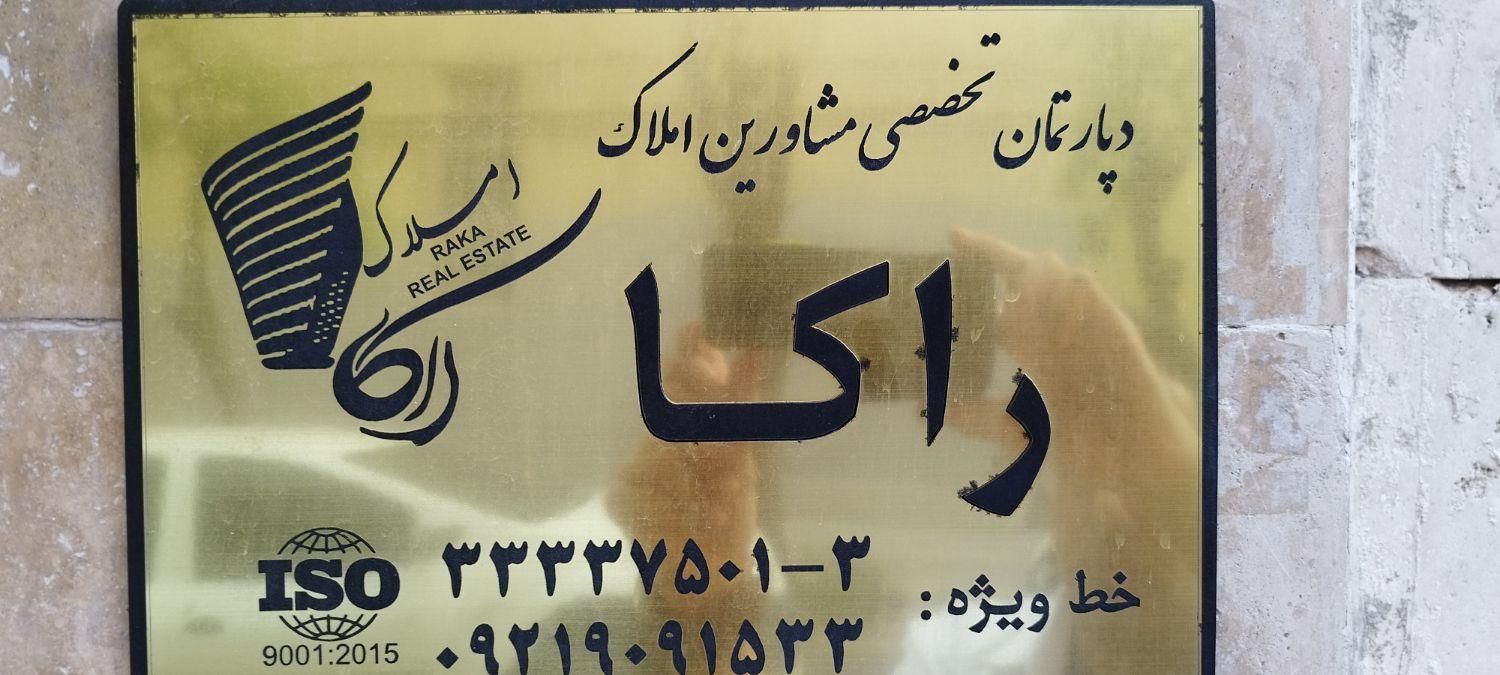 دپارتمان تخصصی مشاورین املاک
راکا
املاک
RAKA
REAL ESTATE
راکا
خط ویژه :
۳۳۳۳۷۵۰۱-۳
۰۹۲۱۹۰۹۱۵۳۳
ISO
9001:2015